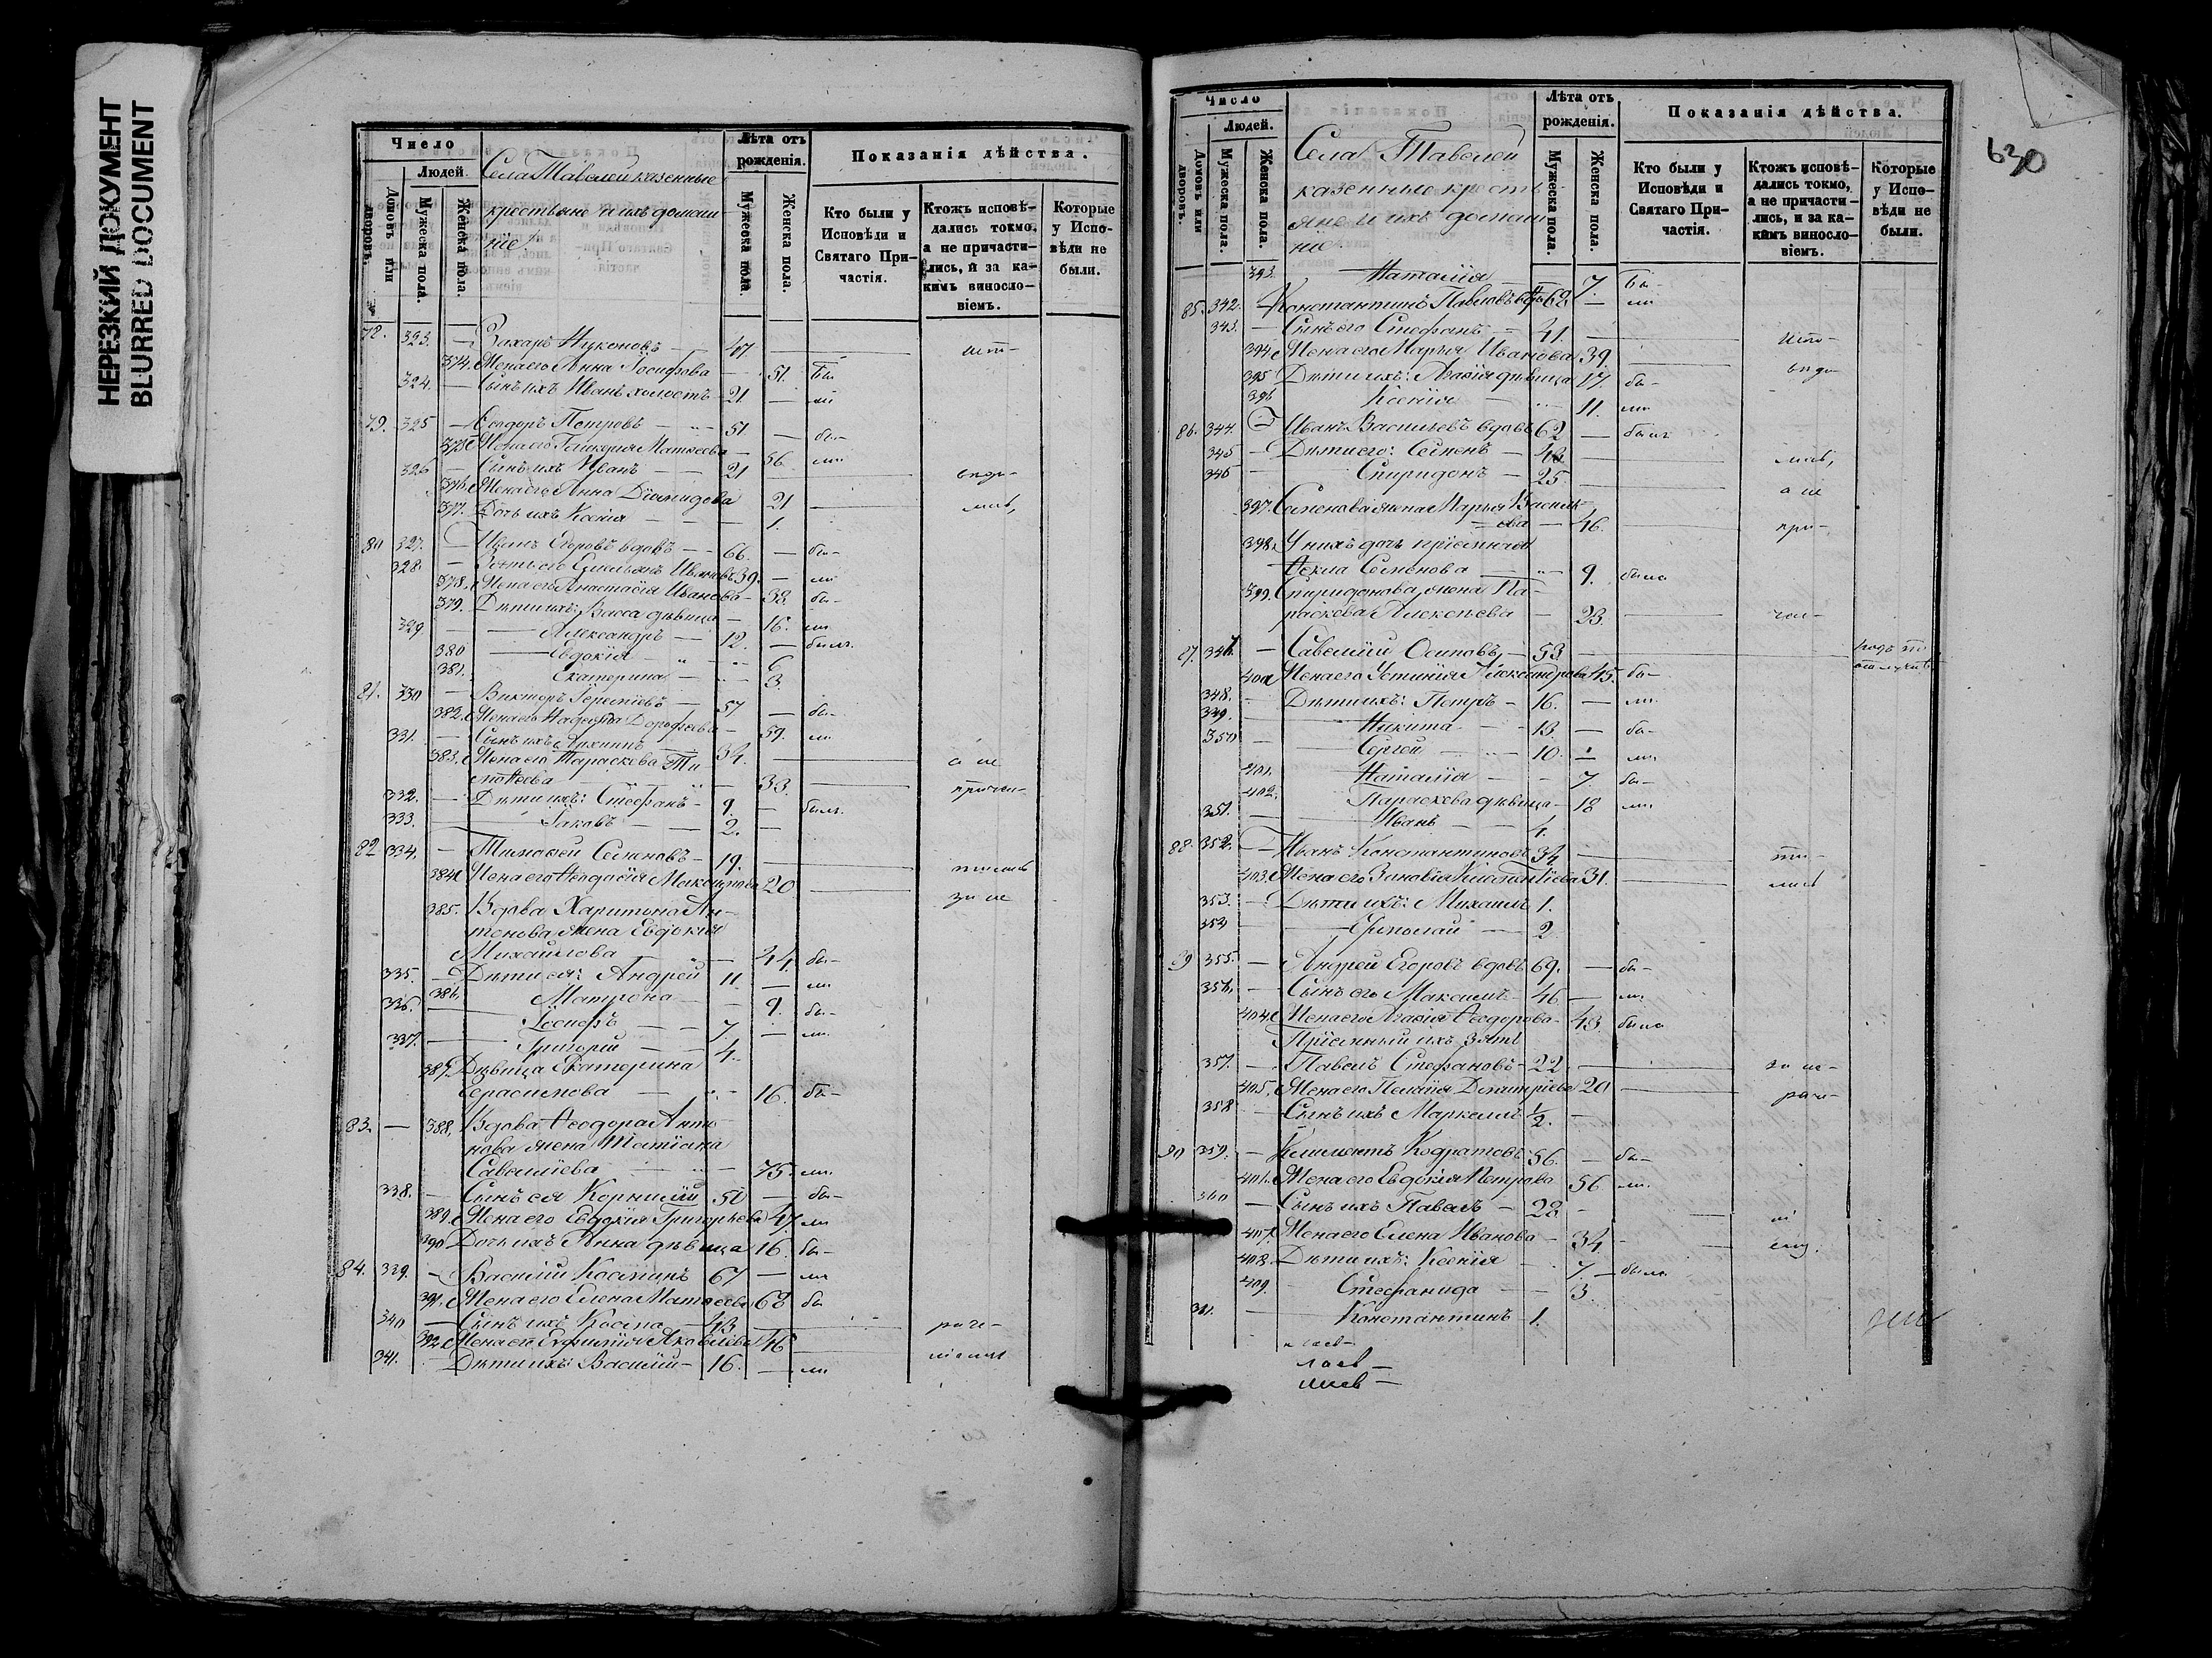 НЕРЕЗКИЙ ДОКУМЕНТ
BLURRED DOCUMENT
Число
Людей
Домовъ или дворовъ.
Мужеска пола.
Женска пола.
Села Тавелей казенные
крестьяне и ихъ домаш-
ніе.
Лѣта отъ рожденія.
Мужеска пола.
Женска пола.
Показанія дѣйства.
Кто были у Исповѣди и Святаго При-частія.
Ктожъ исповѣ-дались токмо, а не причасти-лись, и за ка-кимъ виносло-віемъ.
Которые у Испо-вѣди не были.
78. 323. — Захаръ Никоновъ — 47
374. Жена его Анна Іосифова — 51. Бы
324. — Сынъ ихъ Иванъ холостъ 21 — ли
79. 325 — Ѳеодоръ Петровъ — 51. — бы-
375 Жена его Гликерія Матѳеева — 56 ли
326 — Сынъ ихъ Иванъ — 21
376. Жена его Анна Діомидова 21
377. Дочь ихъ Ксенія — 1.
80 327. — Иванъ Егоровъ вдовъ — 66. — бы-
328. — Зять его Емельянъ Ивановъ 39. — ли
378. Жена его Анастасія Иванова — 38. бы-
379. Дѣти ихъ: Васса дѣвица — 16. ли
329 — Александръ — 12. — былъ.
380 — Евдокія — 6
381. Екатерина — 3.
81. 330 — Викторъ Терентіевъ — 57 — бы-
382. Жена его Надежда Дороѳеева — 59. ли
331. — Сынъ ихъ Архипъ — 34. — а не
383. Жена его Параскева Ти-
моѳеева — 33. причи-
332. — Дѣти ихъ: Стефанъ — 9. — былъ.
333. — Іаковъ — 2. —
82 334. — Тимоѳей Семеновъ — 19.
384. Жена его Ѳеодосія Макарова 20 за не
385. Вдова Харитона Ан-
тонова жена Евдокія
Михайлова — 44. бы-
335. — Дѣти ея: Андрей 11. — ли
386. Матрона — 9. бы-
336. — Іосифъ — 7. — ли.
337. — Григорій — 4.
387. Дѣвица Екатерина
Герасимова — 16. бы-
83. — 388. Вдова Ѳеодора Анто-
нова жена Татіана
Савеліева — 75. ли.
338. — Сынъ ея Корнилій 50 — бы-
389. Жена его Евдокія Григорьева 47 ли
390 Дочь ихъ Анна дѣвица 16. бы-
84. 339. — Василій Косминъ 67 — ли
391. Жена его Елена Матѳеева 68 бы
340 — Сынъ ихъ Косма — 43 раче-
392 Жена его Евфимія Яковлева 46
341. — Дѣти ихъ: Василій — 16. — ли
630
Число
Людей.
Домовъ или дворовъ.
Мужеска пола.
Женска пола.
Села Тавелей
казенные кресть-
яне и ихъ домаш-
ніе.
Лѣта отъ рожденія.
Мужеска пола.
Женска пола.
Показанія дѣйства.
Кто были у Исповѣди и Святаго При-частія.
Ктожъ исповѣ-дались токмо, а не причасти-лись, и за ка-кимъ виносло-віемъ.
Которые у Испо-вѣди не были.
393. Наталія — 7. Бы-
85. 342. — Константинъ Павловъ вдовъ 68 — ли
343. — Сынъ его Стефанъ — 41. Испо-
394. Жена его Марія Иванова 39. вѣда-
395 Дѣти ихъ: Агаѳія дѣвица 17. бы-
396 Ксенія — 11. ли
86. 344. — Иванъ Васильевъ вдовъ 62 — былъ
345 — Дѣти его: Семенъ — 46 лись,
346 — Спиридонъ — 25. а не
397. Семенова жена Марья Василь-
ева — 46. при-
398. У нихъ дочь пріемная
Ѳекла Семенова — 9. была
399. Спиридонова жена Па-
раскева Алексѣева — 23.
87. 347. — Савелій Осиповъ — 53
400 Жена его Устинія Александрова 45. бы-
348. — Дѣти ихъ: Петръ — 16. — ли.
349. — Никита — 13. — бы-
350 — Сергей — 10. — ли.
401. Наталія — 7. бы-
402. Параскева дѣвица — 18 ли.
351. — Иванъ — 4.
88. 352. — Иванъ Константиновъ 34 сти-
403. Жена его Зиновія Климентіева 31. лись
353. — Дѣти ихъ: Михаилъ 1.
354 — Николай — 2
89 355. — Андрей Егоровъ вдовъ 69. — бы-
356. — Сынъ его Максимъ — 46 — ли.
404. Жена его Агаѳія Ѳеодорова — 43. была
Пріемный ихъ зять
357. — Павелъ Стефановъ — 22. за не-
405. Жена его Пелагія Димитріева 20 раче-
358 — Сынъ ихъ Маркеллъ 1/2.
90 359. — Климентъ Кодратовъ 56. — бы-
406. Жена его Евдокія Петрова 56 ли.
360 — Сынъ ихъ Павелъ — 28 — ні
407. Жена его Елена Иванова — 34 — емъ.
408. Дѣти ихъ: Ксенія — 7. — была
409. Стефанида — 3
361. — Константинъ — 1.